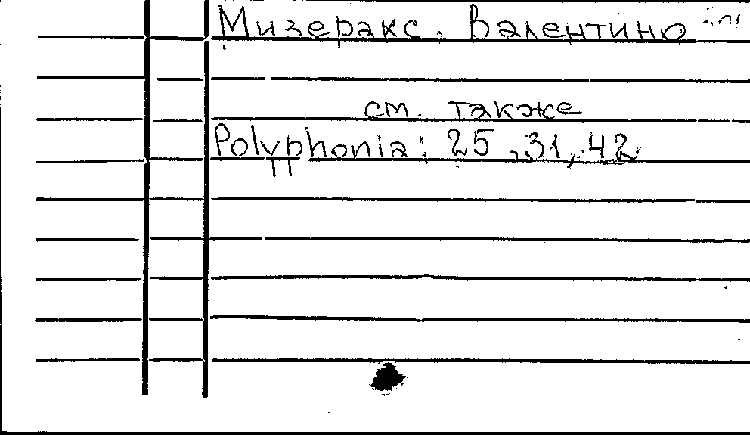 Мизеракс. Валентино
см. также
Polyphonia: 25, 31, 42